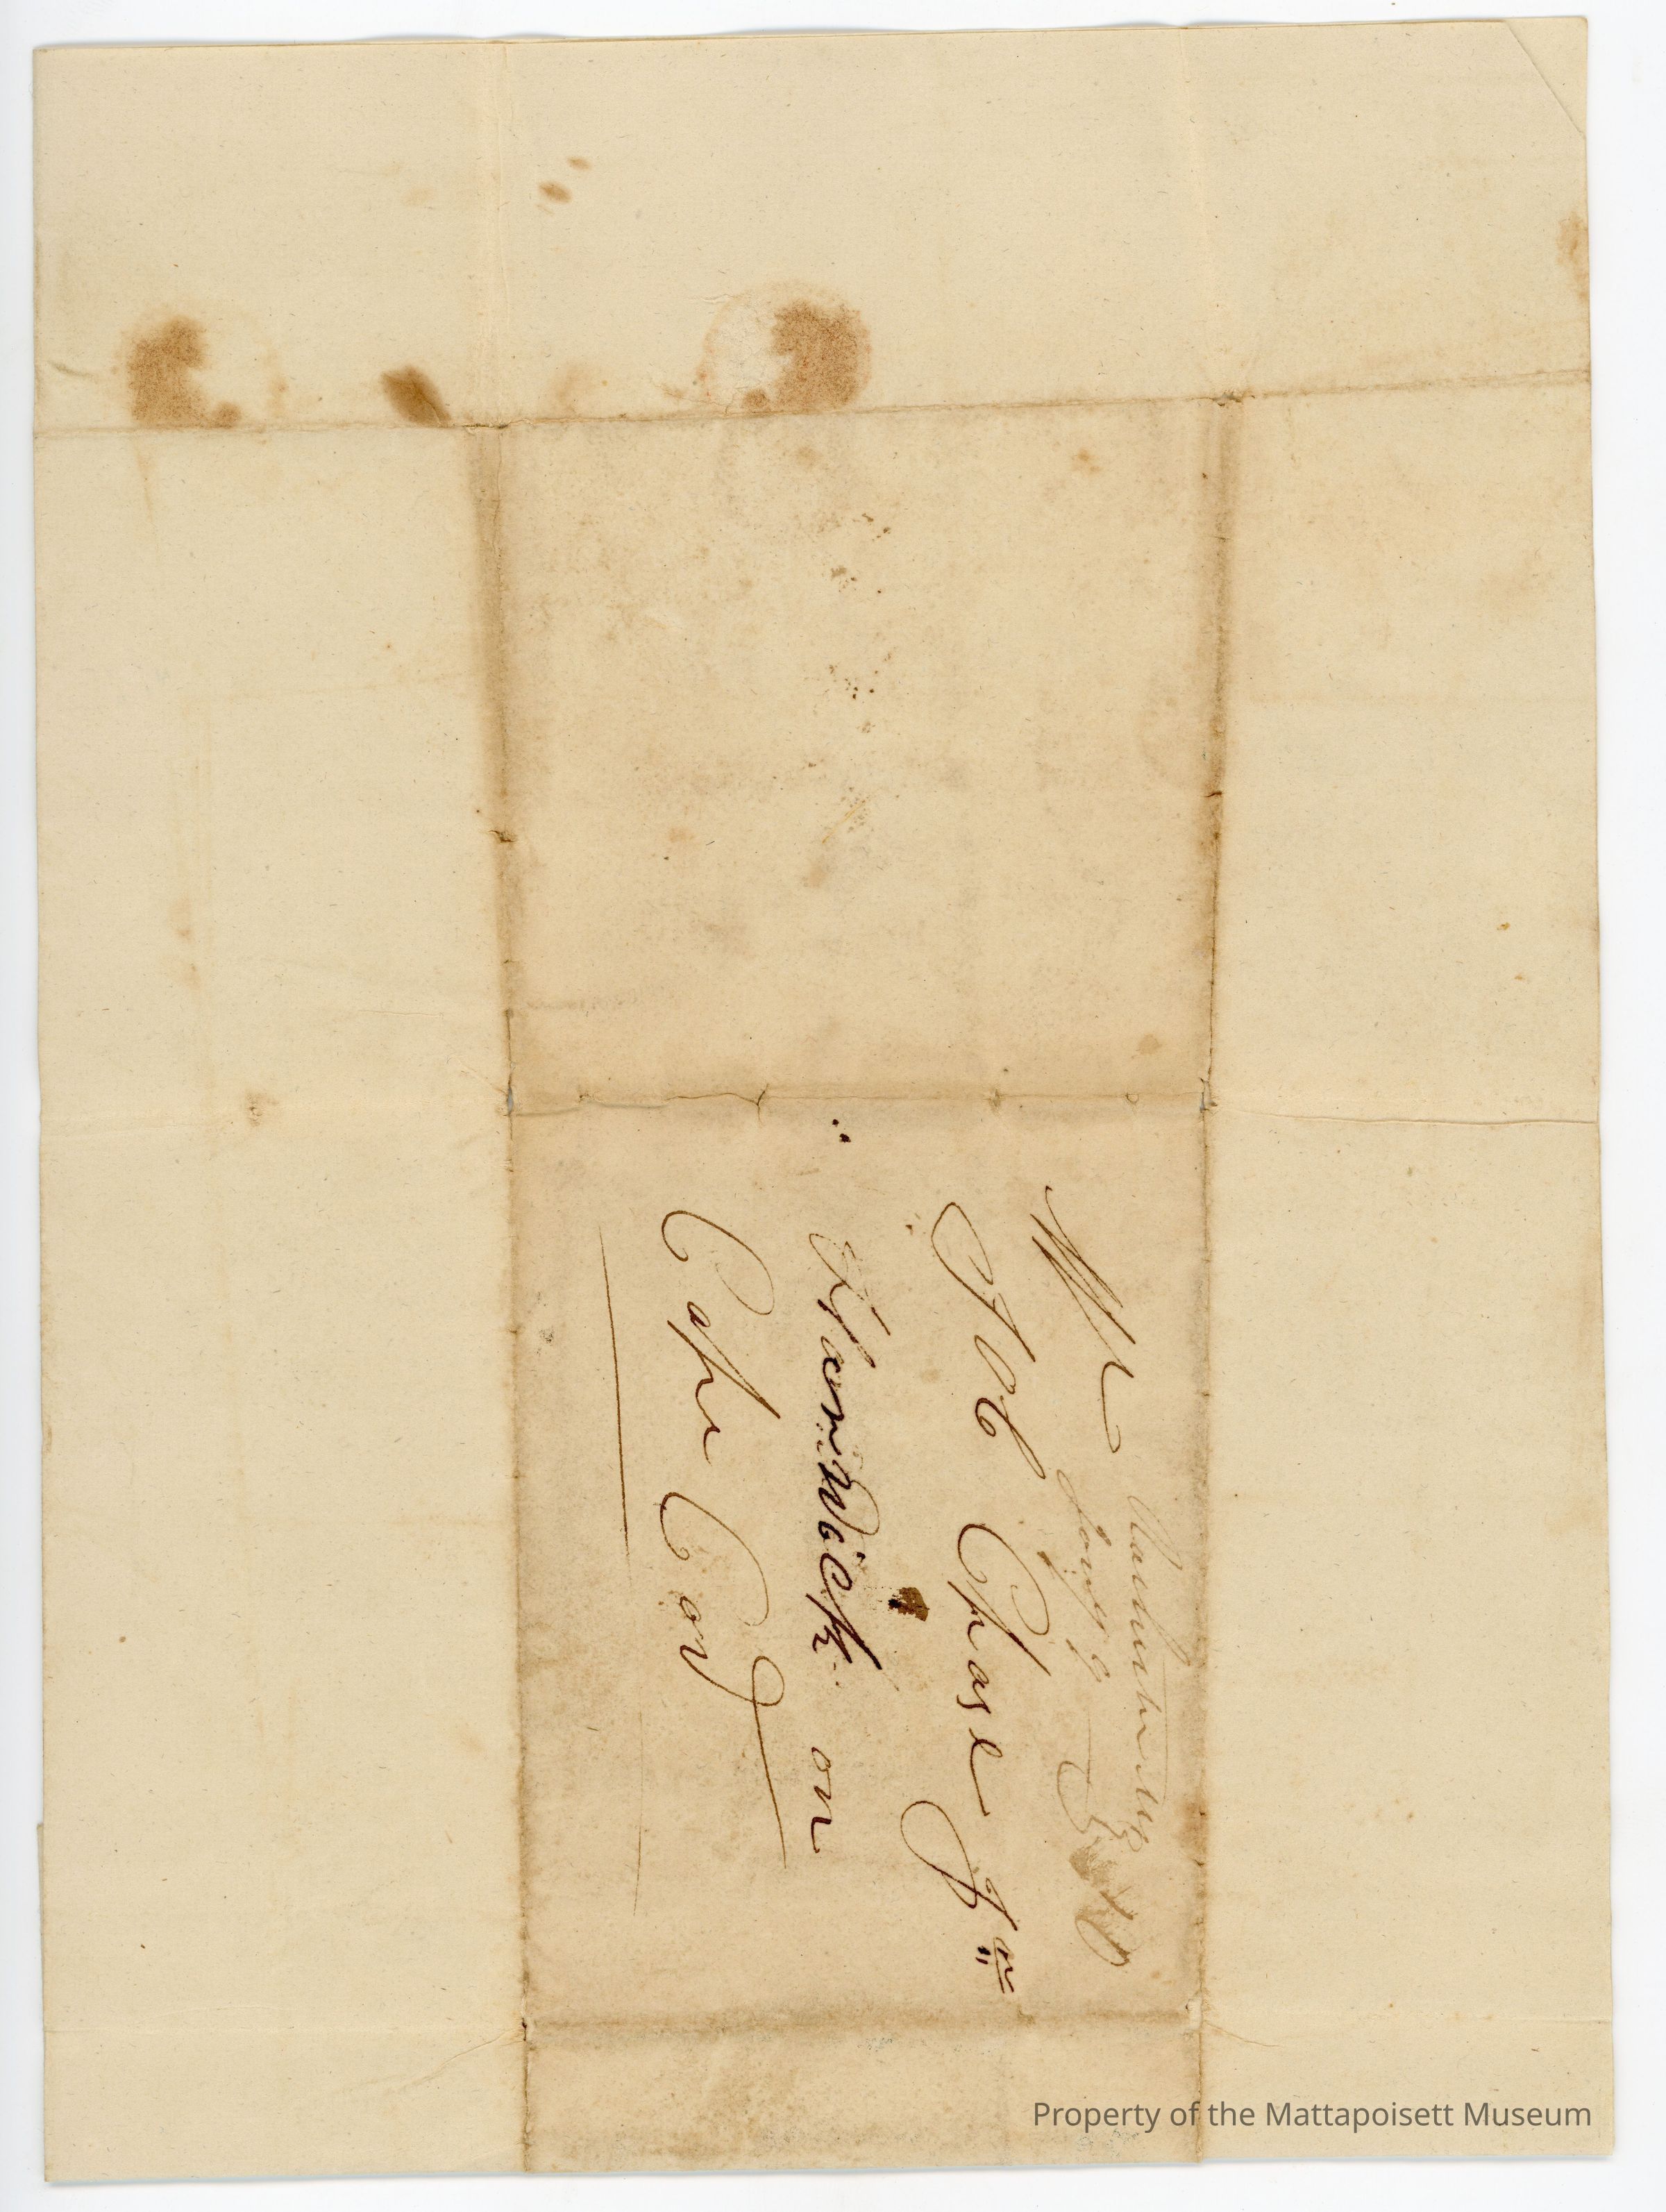 Mr
Job Chase Jn
Harwich on
Cape Cod
Property of the Mattapoisett Museum